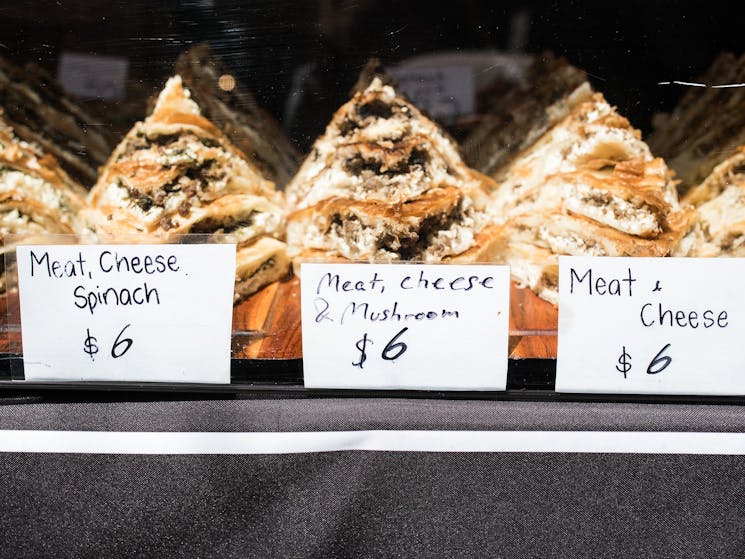 Meat, Cheese.
Spinach
$ 6
Meat, cheese
& Mushroom
$ 6
Meat &
Cheese
$ 6